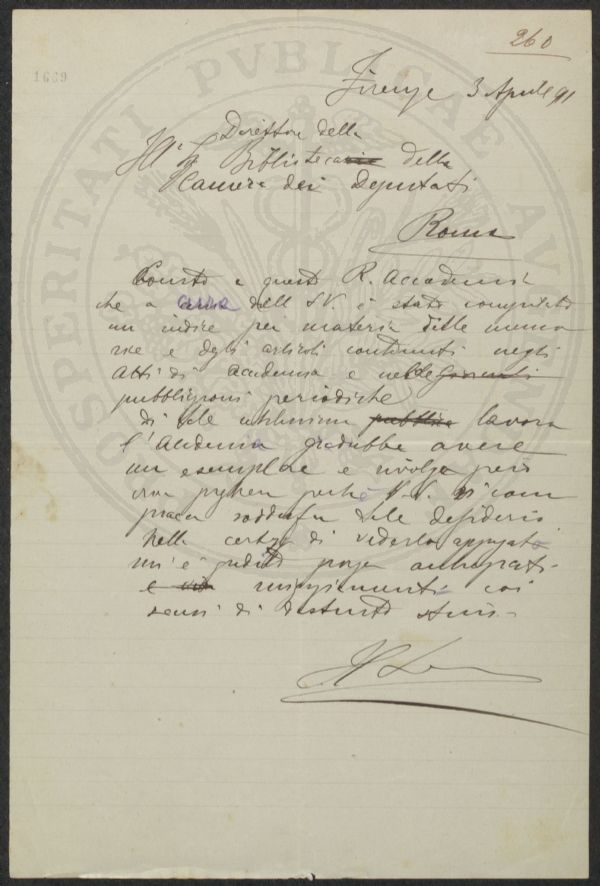 260
1669
PROSPERITATI PVBLICAE AVGENDAE
Firenze 3 Aprile 91
Direttore della
Ill. Sig. Bibliotecario della
Camera dei Deputati
Roma
Consta a questa R. Accademia
che a cura dell S.V. è stato compilato
un indice per materia delle memo
rie e degli articoli contenuti negli
Atti di Accademia e nelle
pubblicazioni periodiche
di tale utilissimo pubblico lavoro
l'Accademia gradirebbe avere
un esemplare e rivolge però
viva preghiera perchè V.S. si com
piaccia soddisfare tale desiderio
Nella certezza di vederlo appagato
mi è gradito porger anticipati
e ringraziamenti coi
sensi di distinta stima